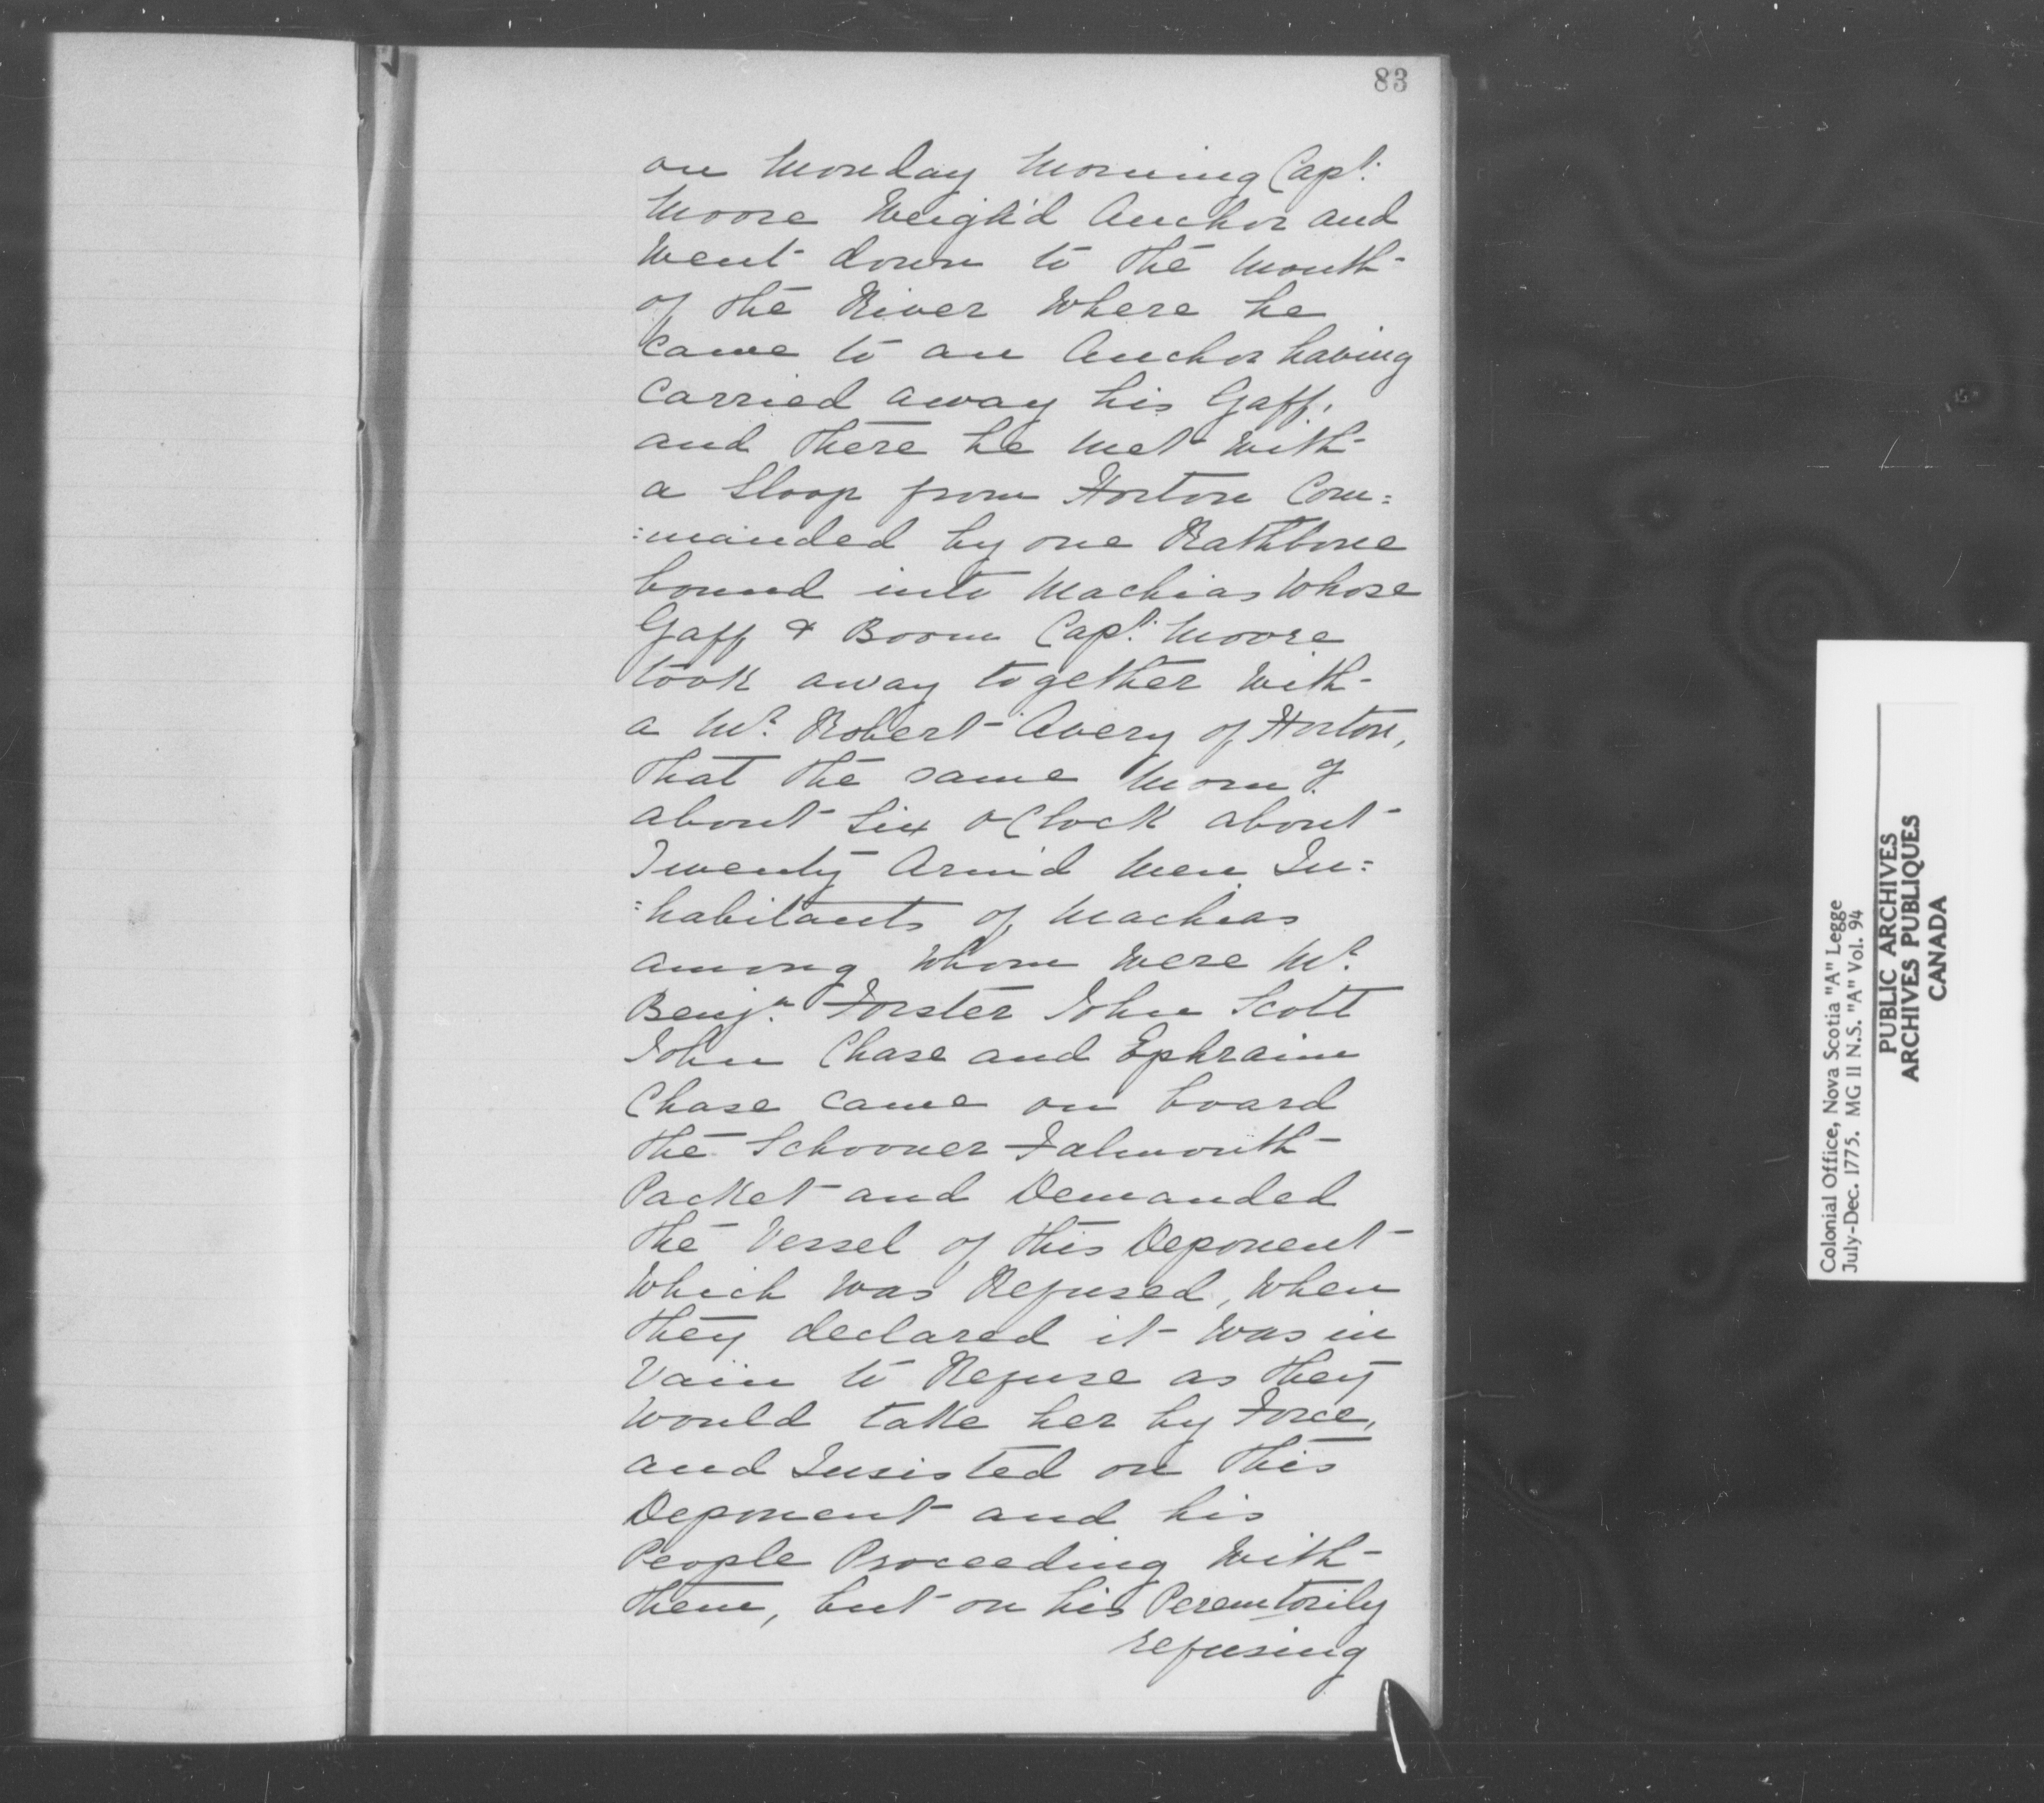 83
on Monday Morning Capt.
Moore Weigh'd Anchor and
Went down to the Mouth
of the River Where he
Came to an Anchor having
Carried away his Gaff,
and there he Met With
a Sloop from Horton Com=
=manded by one Rathbone
bound into Machias Whose
Gaff & Boom Capt. Moore
took away together With
a Mr. Robert Avery of Horton,
that the same Morng.
about Six oClock about
Twenty Arm'd Men In=
=habitants of Machias
among Whom Were Mr.
Benjn. Forster John Scott
John Chase and Ephraim
Chase Came on board
the Schooner Falmouth
Packet and Demanded
the Vessel of this Deponent
Which Was Refused, When
they declared it Was in
Vain to Refuse as they
Would take her by Force,
and Insisted on this
Deponent and his
People Proceeding With
them, but on his Peremtorily
refusing
Colonial Office, Nova Scotia "A" Legge
July-Dec. 1775. MG 11 N.S. "A" Vol. 94
PUBLIC ARCHIVES
ARCHIVES PUBLIQUES
CANADA